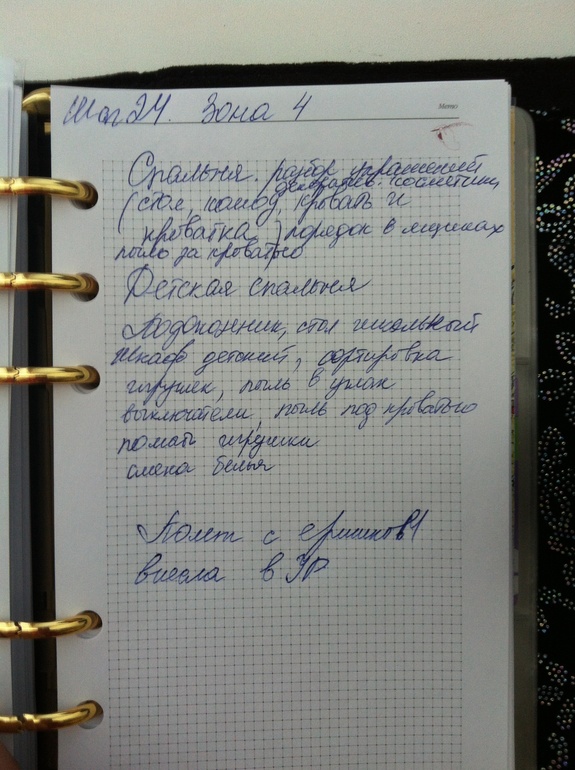 Шаг 24. Зона 4
Memo
Спальня. разбор украшений
декоратив. косметики
(стол, комод, кровать и
кроватка) порядок в ящиках
пыль за кроватью
Детская спальня
Подоконник, стол школьный
шкаф детский, сортировка
игрушек, пыль в углах
выключатели, пыль под кроватью
помыть игрушки
смена белья
с
внесла в УР